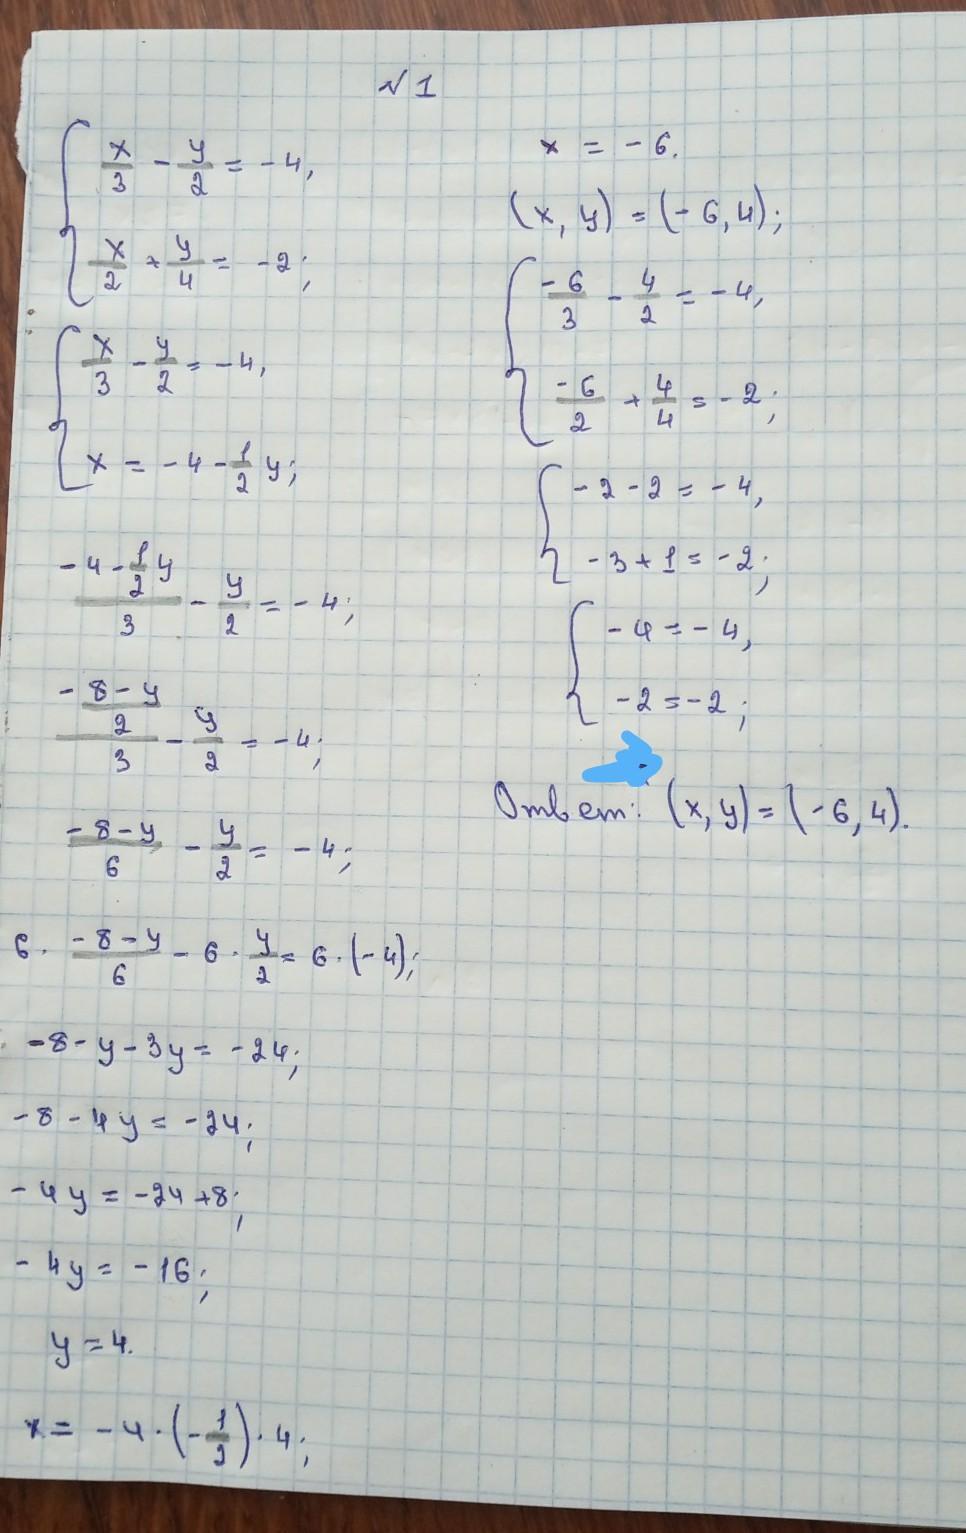 №1
x/3 - y/2 = -4,
x/2 + y/4 = -2;
x/3 - y/2 = -4,
x = -4 - 1/2 y;
(-4 - 1/2 y)/3 - y/2 = -4;
((-8 - y)/2)/3 - y/2 = -4;
(-8 - y)/6 - y/2 = -4;
6 · (-8 - y)/6 - 6 · y/2 = 6 · (-4);
-8 - y - 3y = -24;
-8 - 4y = -24;
-4y = -24 + 8;
-4y = -16;
y = 4.
x = -4 · (-1/2) · 4;
x = -6.
(x, y) = (-6, 4);
-6/3 - 4/2 = -4,
-6/2 + 4/4 = -2;
-2 - 2 = -4,
-3 + 1 = -2;
-4 = -4,
-2 = -2;
Ответ: (x, y) = (-6, 4).